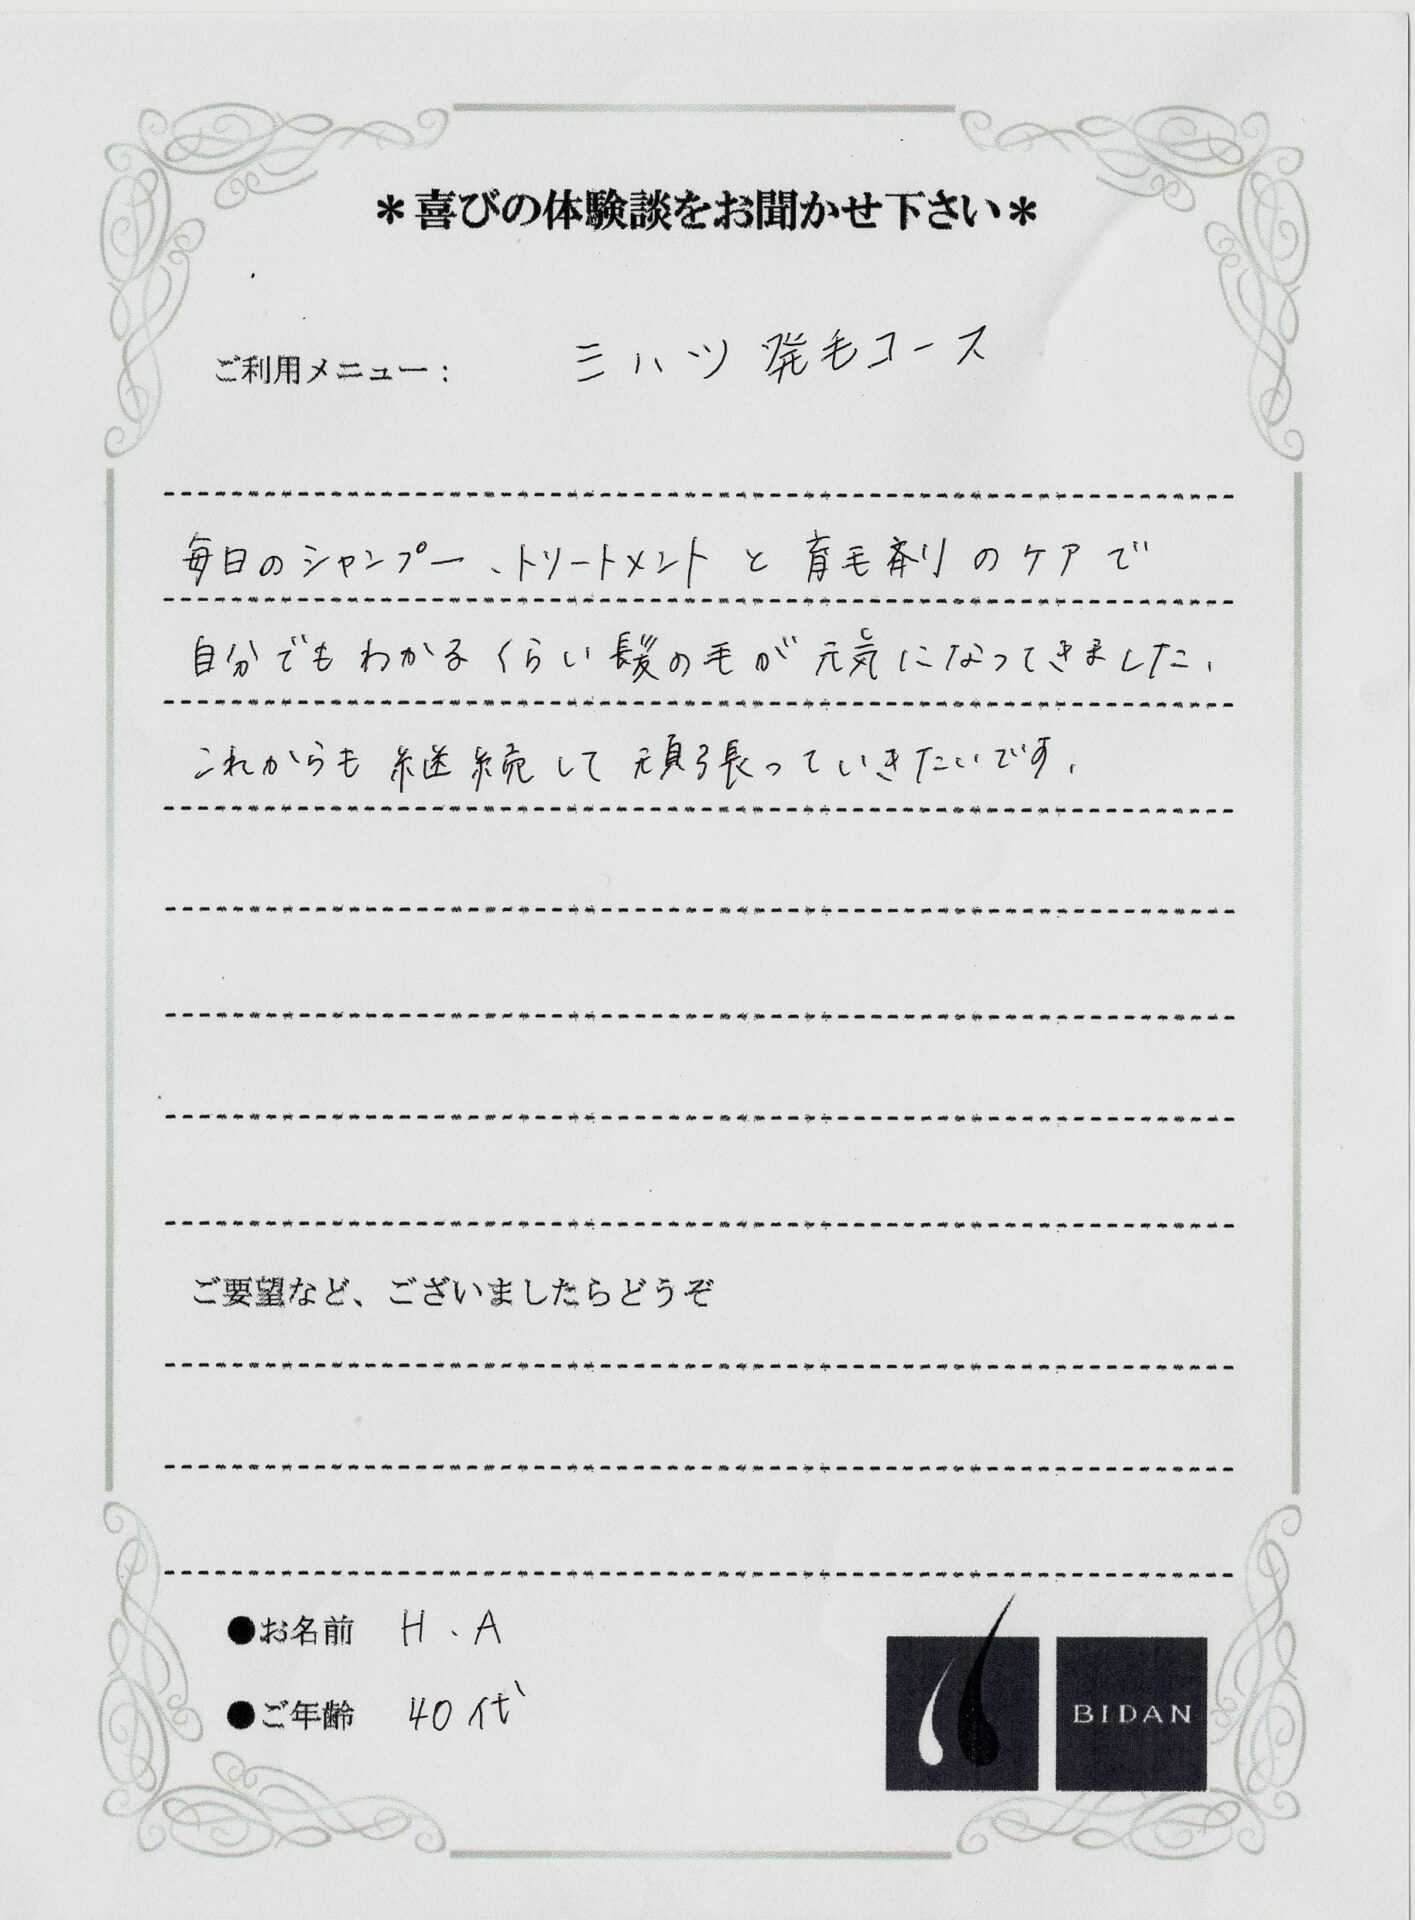 ＊喜びの体験談をお聞かせ下さい＊
ご利用メニュー： ミハツ発毛コース
毎日のシャンプー、トリートメントと育毛剤のケアで
自分でもわかるくらい髪の毛が元気になってきました、
これからも継続して頑張っていきたいです、
ご要望など、ございましたらどうぞ
●お名前 H．A
●ご年齢 40代
BIDAN